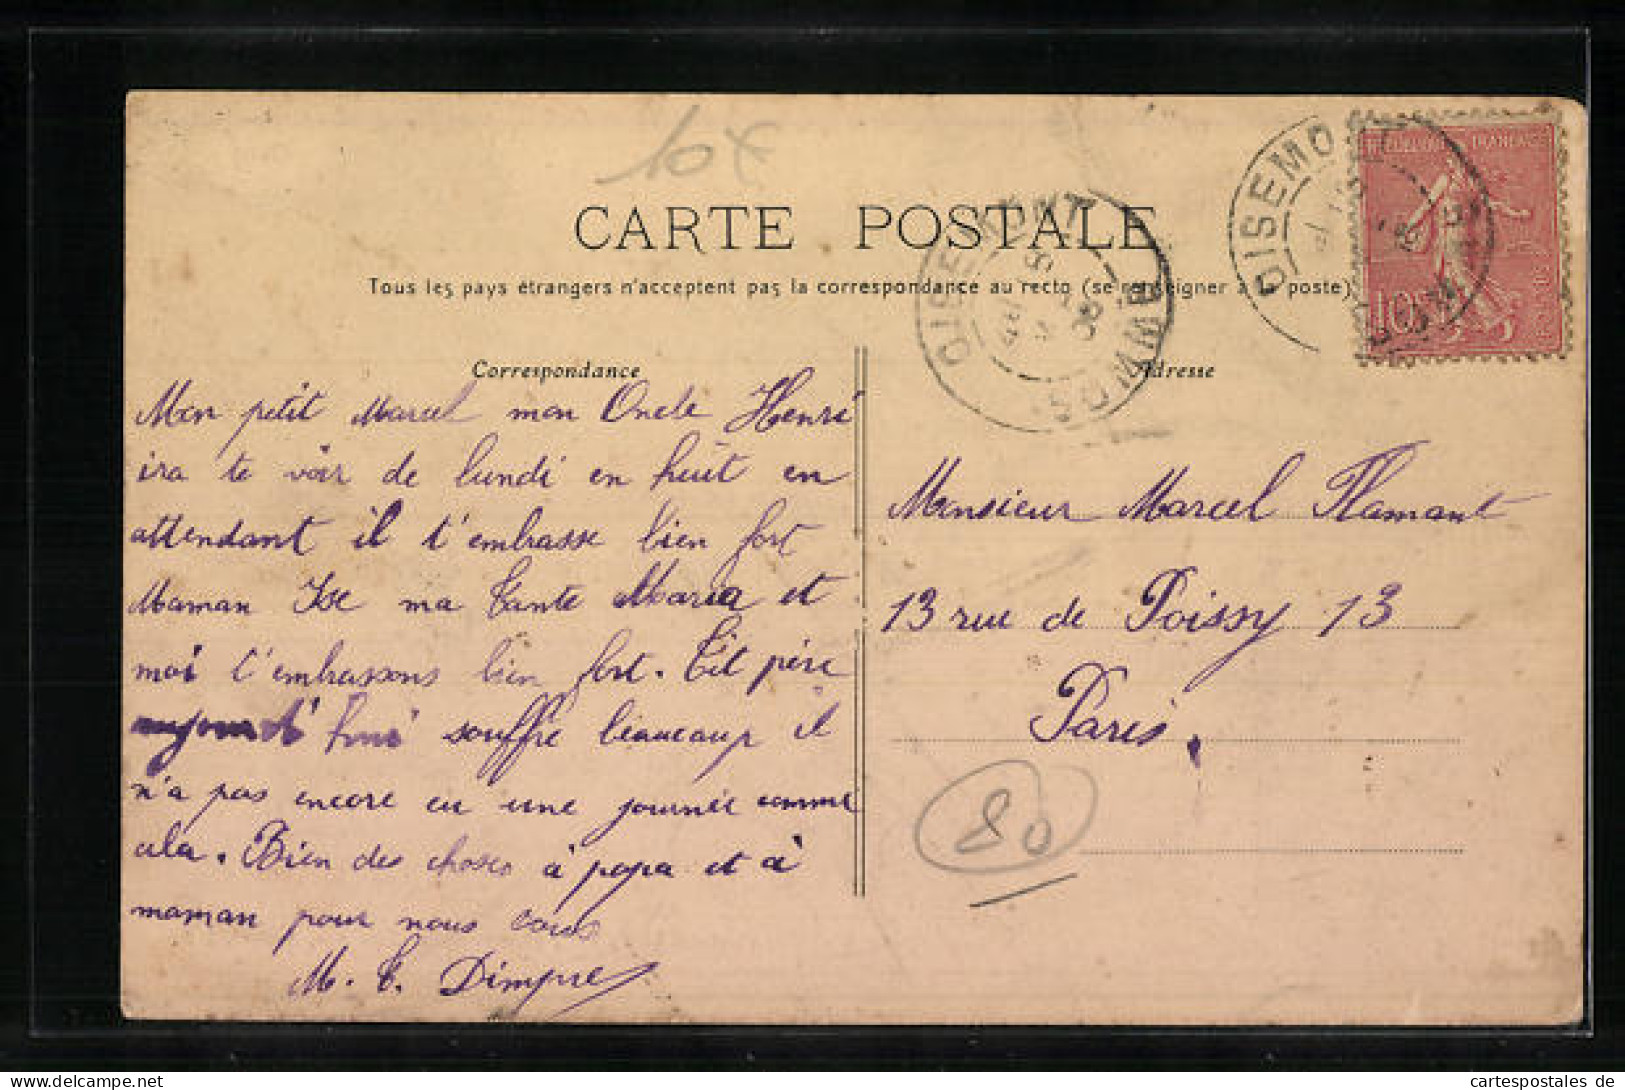 10x
CARTE POSTALE
Tous les pays étrangers n'acceptent pas la correspondance au recto (se renseigner à la poste)
OISEMONT
SOMME
OISEMONT
SOMME
REPUBLIQUE FRANÇAISE
10
POSTES
Correspondance
Mon petit Marcel mon Oncle Henri
ira te voir de lundi en huit en
attendant il t'embrasse bien fort
Maman Ise ma tante Maria et
moi t'embrassons bien fort. Tit père
aujourd'hui souffre beaucoup il
n'a pas encore eu une journée comme
cela. Bien des choses à papa et à
maman pour nous tous
M. T. Dimpre
Adresse
Monsieur Marcel Flamant
13 rue de Poissy 13
Paris.
80
cartespostales de